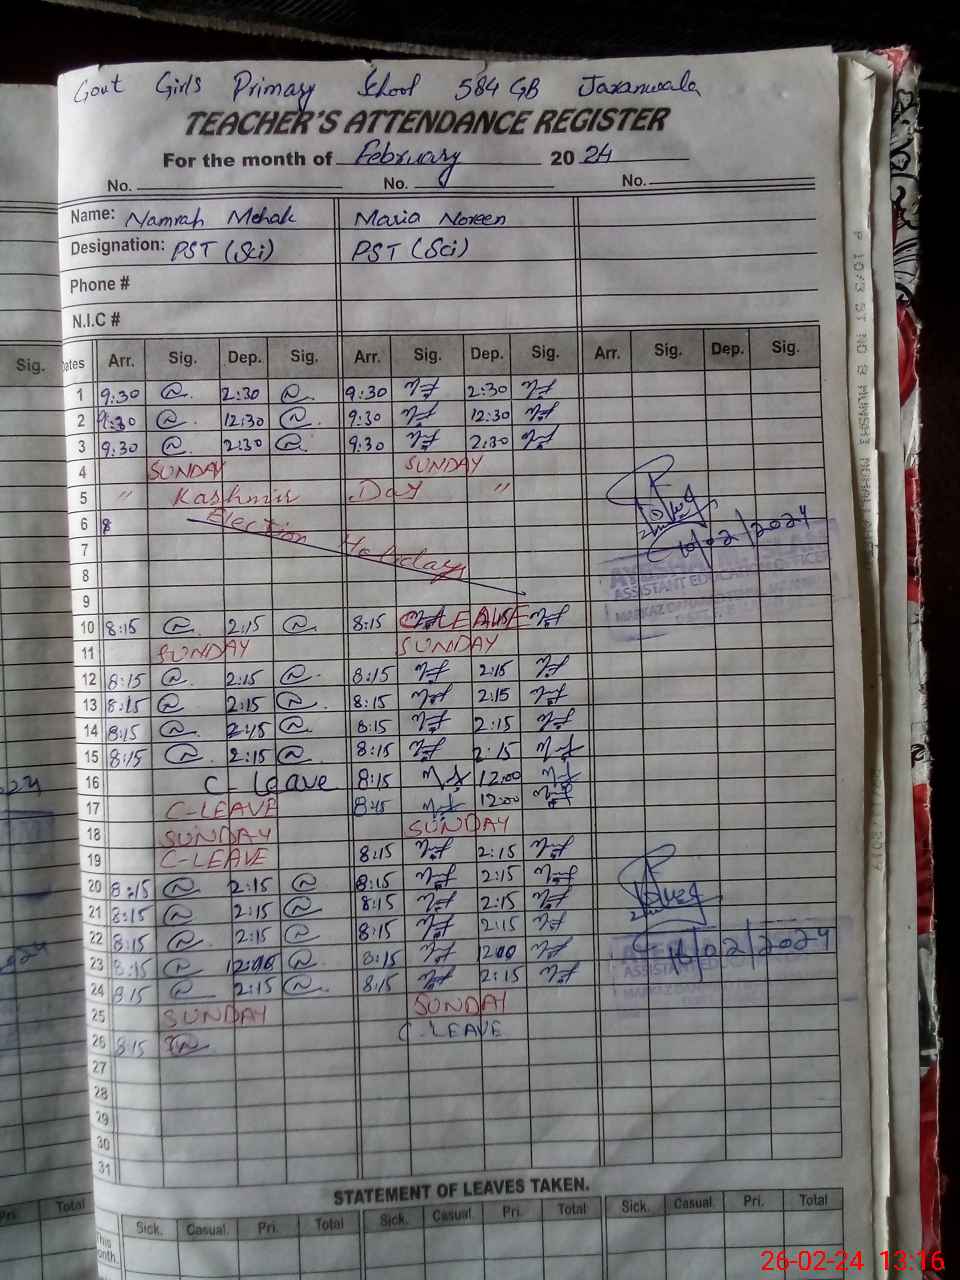 Govt Girls Primary School 584 GB Jaranwala
TEACHER'S ATTENDANCE REGISTER
For the month of February 2024
No. No. No.
Name: Namrah Mehak Maria Noreen
Designation: PST (Sci) PST (Sci)
Phone #
N.I.C #
Sig. Dates Arr. Sig. Dep. Sig. Arr. Sig. Dep. Sig. Arr. Sig. Dep. Sig.
1 9:30 2:30 9:30 2:30
2 9:30 12:30 9:30 12:30
3 9:30 2:30 9:30 2:30
4 SUNDAY SUNDAY
5 " Kashmir Day "
6 8 Election
7 Holidays
8
9
10/02/2024
ASSISTANT EDUCATION OFFICER
10 8:15 2:15 8:15 LEAVE
11 SUNDAY SUNDAY
12 8:15 2:15 8:15 2:15
13 8:15 2:15 8:15 2:15
14 8:15 2:15 8:15 2:15
15 8:15 2:15 8:15 2:15
16 C-Leave 8:15 12:00
17 C-LEAVE 8:15 12:00
18 SUNDAY SUNDAY
19 C-LEAVE 8:15 2:15
20 8:15 2:15 8:15 2:15
21 8:15 2:15 8:15 2:15
22 8:15 2:15 8:15 2:15
23 8:15 12:00 8:15 1200
24 8:15 2:15 8:15 2:15
/02/2024
ASSISTANT EDUCATION
25 SUNDAY SUNDAY
26 8:15 C-LEAVE
27
28
29
30
31
STATEMENT OF LEAVES TAKEN.
Pri. Total Sick. Casual. Pri. Total Sick. Casual. Pri. Total Sick. Casual. Pri. Total
This Month.
26-02-24 13:16